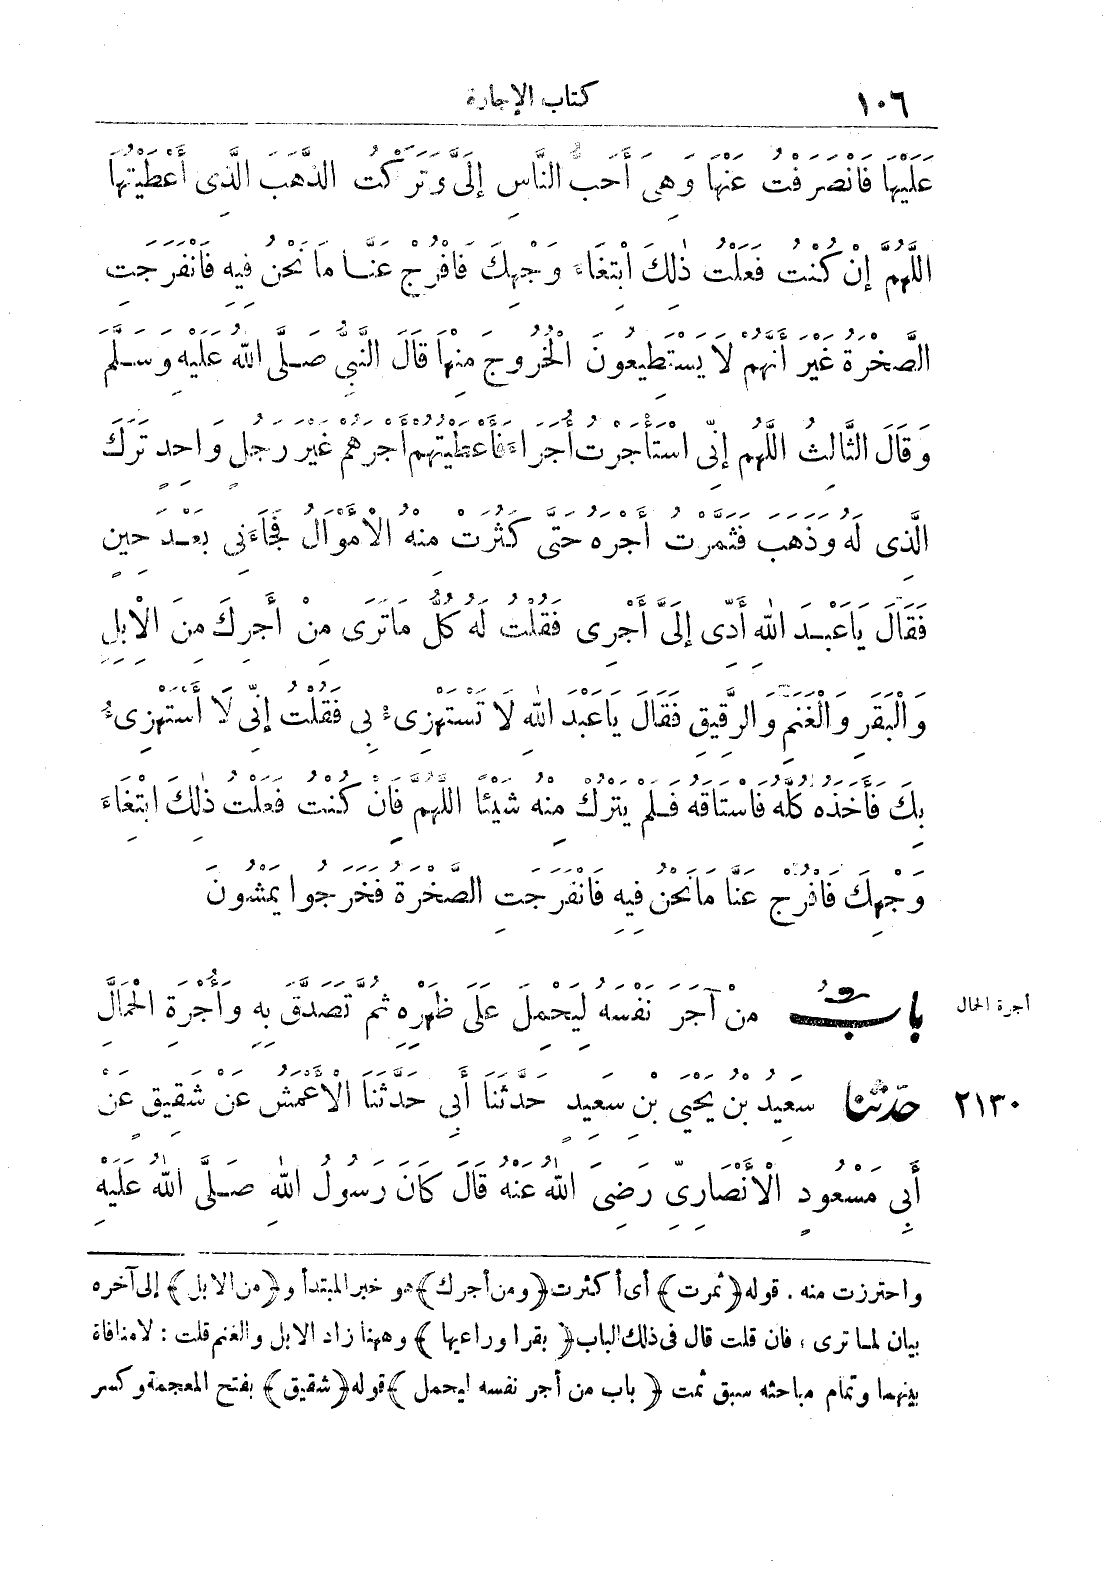 ١٠٦ كتاب الإجارة
عَلَيْهَا فَانْصَرَفْتُ عَنْهَا وَهِيَ أَحَبُّ النَّاسِ إِلَىَّ وَتَرَكْتُ الذَّهَبَ الَّذِى أَعْطَيْتُهَا
اللَّهُمَّ إِنْ كُنْتُ فَعَلْتُ ذٰلِكَ ابْتِغَاءَ وَجْهِكَ فَافْرُجْ عَنَّا مَا نَحْنُ فِيهِ فَانْفَرَجَتِ
الصَّخْرَةُ غَيْرَ أَنَّهُمْ لَا يَسْتَطِيعُونَ الْخُرُوجَ مِنْهَا قَالَ النَّبِىُّ صَلَّى اللهُ عَلَيْهِ وَسَلَّمَ
وَقَالَ الثَّالِثُ اللَّهُمَّ إِنِّى اسْتَأْجَرْتُ أُجَرَاءَ فَأَعْطَيْتُهُمْ أَجْرَهُمْ غَيْرَ رَجُلٍ وَاحِدٍ تَرَكَ
الَّذِى لَهُ وَذَهَبَ فَثَمَّرْتُ أَجْرَهُ حَتَّى كَثُرَتْ مِنْهُ الْأَمْوَالُ فَجَاءَنِى بَعْدَ حِينٍ
فَقَالَ يَا عَبْدَ اللهِ أَدِّى إِلَىَّ أَجْرِى فَقُلْتُ لَهُ كُلُّ مَا تَرَى مِنْ أَجْرِكَ مِنَ الْإِبِلِ
وَالْبَقَرِ وَالْغَنَمِ وَالرَّقِيقِ فَقَالَ يَا عَبْدَ اللهِ لَا تَسْتَهْزِىءْ بِى فَقُلْتُ إِنِّى لَا أَسْتَهْزِىءُ
بِكَ فَأَخَذَهُ كُلَّهُ فَاسْتَاقَهُ فَلَمْ يَتْرُكْ مِنْهُ شَيْئًا اللَّهُمَّ فَإِنْ كُنْتُ فَعَلْتُ ذٰلِكَ ابْتِغَاءَ
وَجْهِكَ فَافْرُجْ عَنَّا مَا نَحْنُ فِيهِ فَانْفَرَجَتِ الصَّخْرَةُ فَخَرَجُوا يَمْشُونَ
بابُ مَنْ آجَرَ نَفْسَهُ لِيَحْمِلَ عَلَى ظَهْرِهِ ثُمَّ تَصَدَّقَ بِهِ وَأُجْرَةِ الْحَمَّالِ
أجرة الحمال
٢١٣٠ حَدَّثَنَا سَعِيدُ بْنُ يَحْيَى بْنِ سَعِيدٍ حَدَّثَنَا أَبِى حَدَّثَنَا الْأَعْمَشُ عَنْ شَقِيقٍ عَنْ
أَبِى مَسْعُودٍ الْأَنْصَارِىِّ رَضِىَ اللهُ عَنْهُ قَالَ كَانَ رَسُولُ اللهِ صَلَّى اللهُ عَلَيْهِ
واحترزت منه . قوله ﴿ثمرت﴾ أى أكثرت ﴿ومن أجرك﴾ هو خبر المبتدأ و﴿من الابل﴾ إلى آخره
بيان لما ترى ، فان قلت قال فى ذلك الباب ﴿بقرا وراعيها﴾ وههنا زاد الابل والغنم قلت : لا منافاة
بينهما وتمام مباحثه سبق ثمت ﴿باب من أجر نفسه ليحمل﴾ قوله ﴿شقيق﴾ بفتح المعجمة وكسر